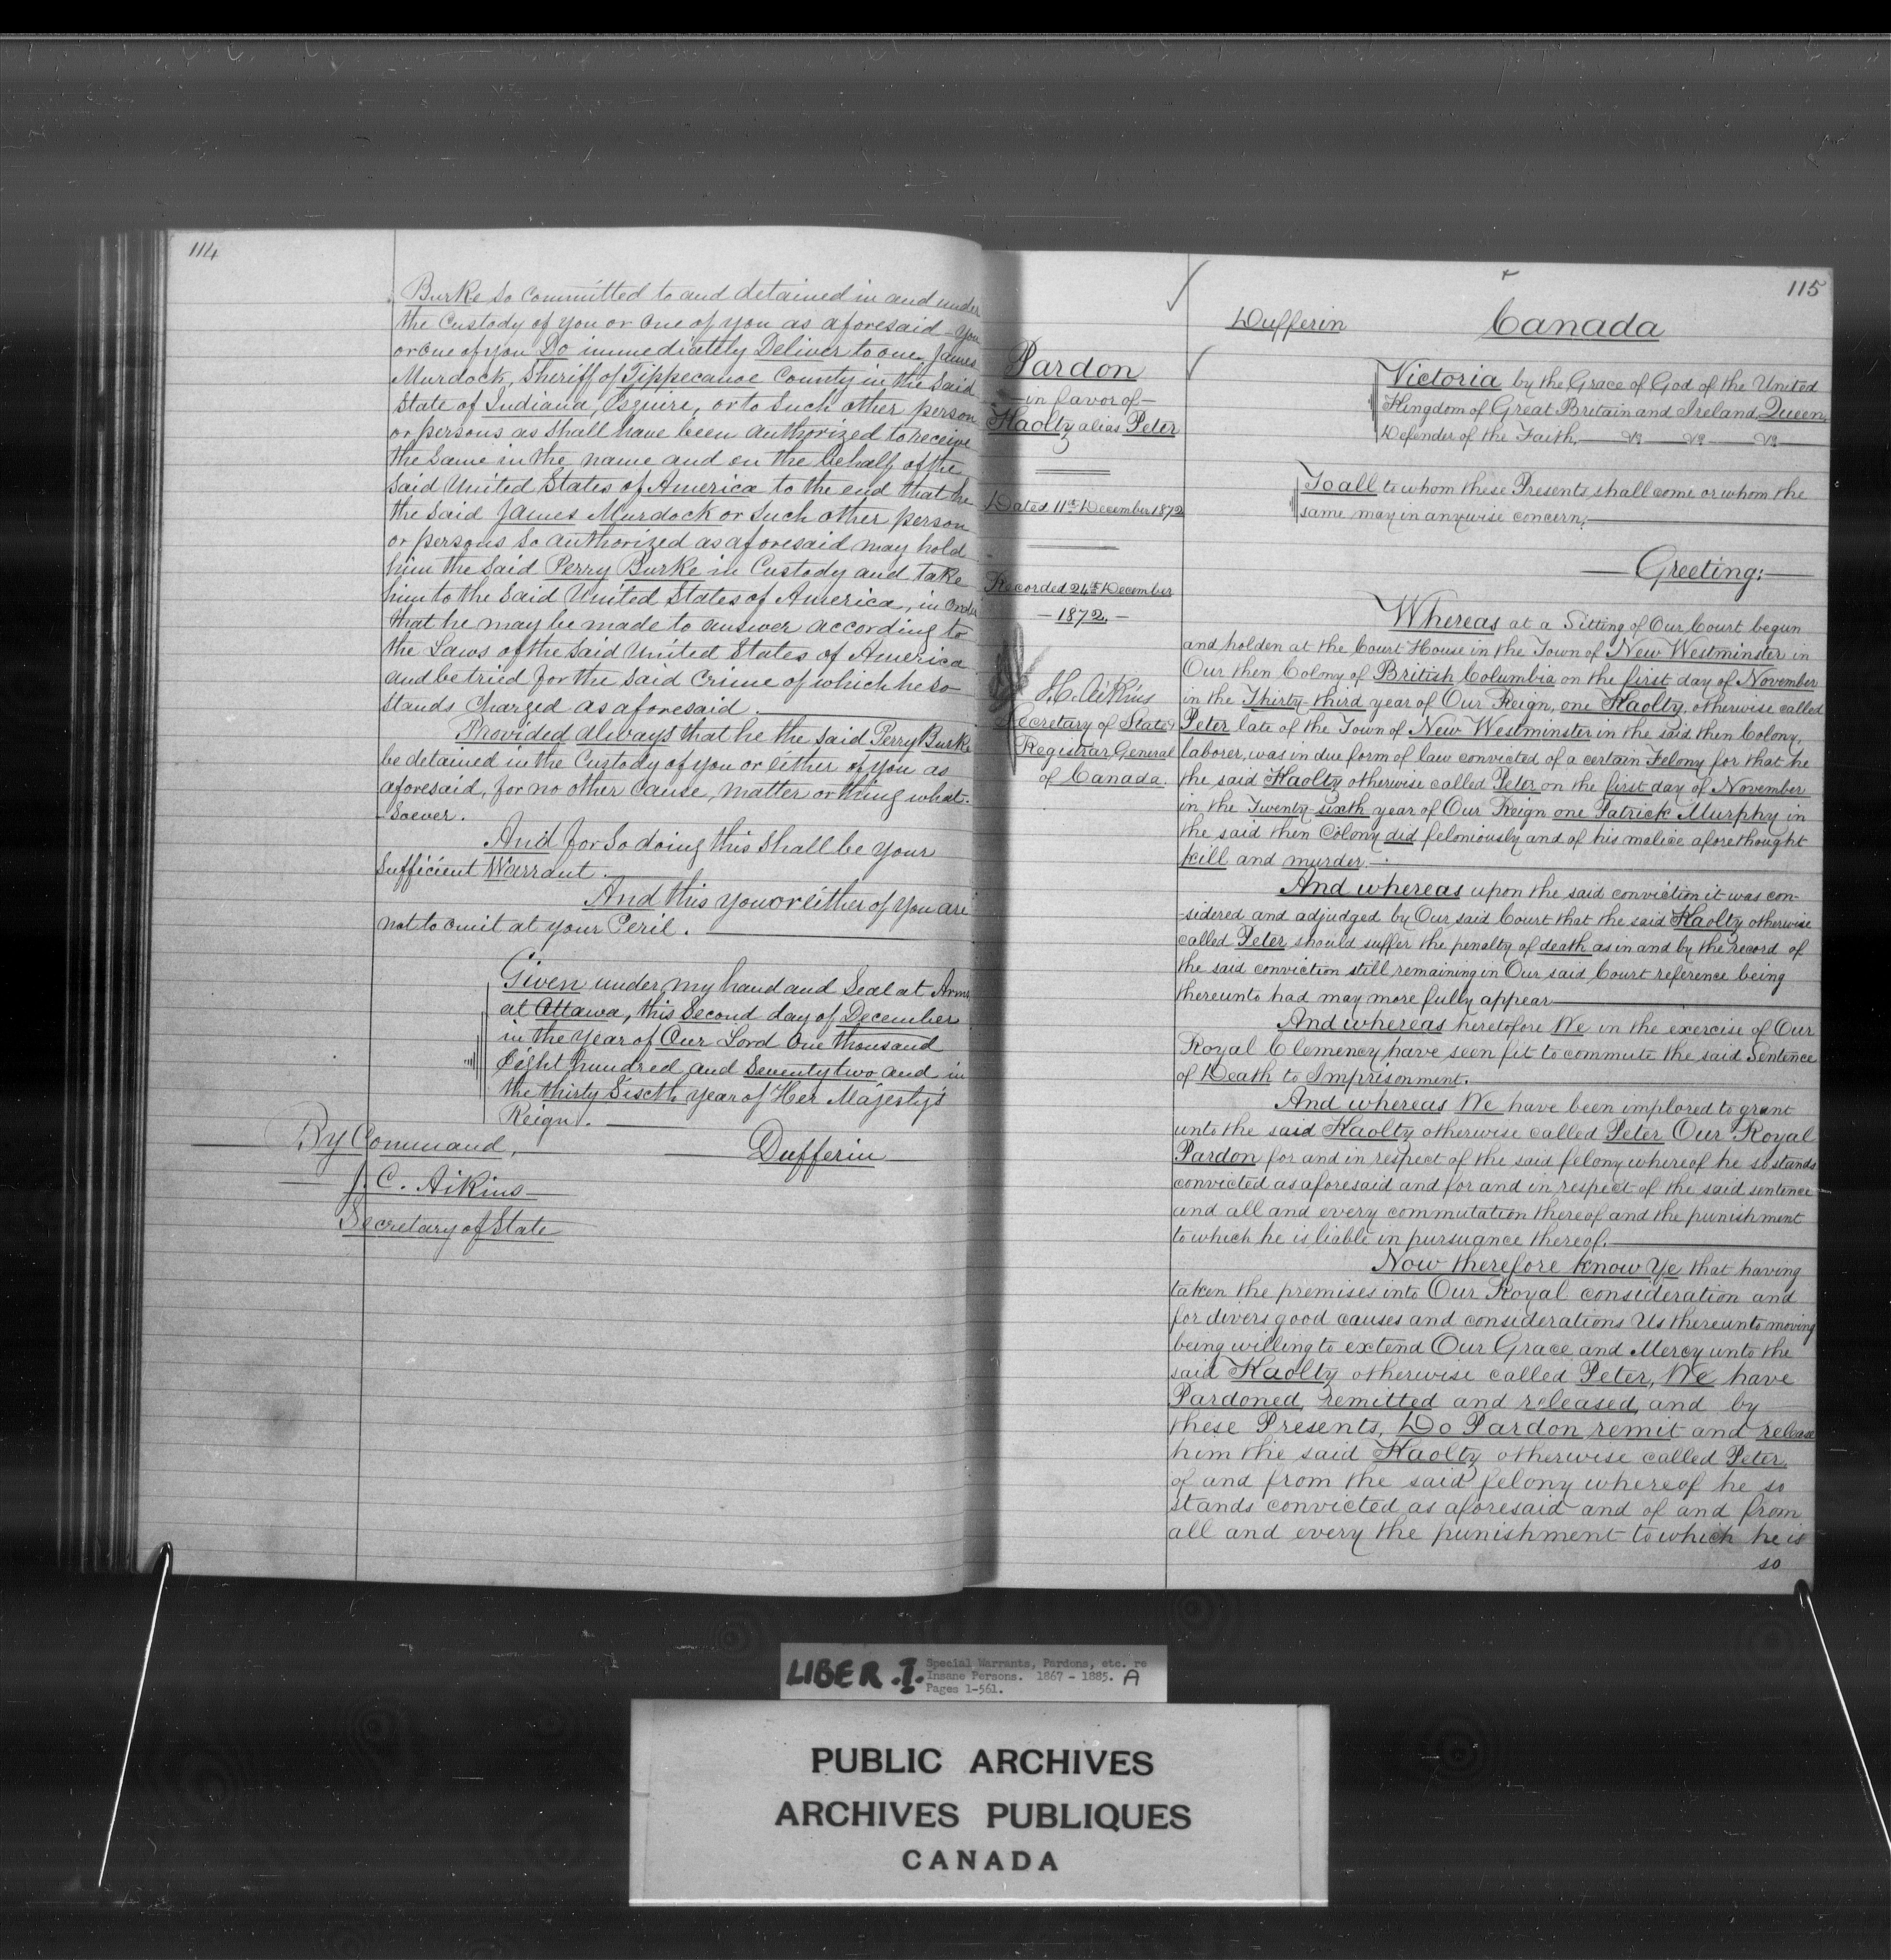 114
Burke so committed to and detained in and under
the Custody of you or one of you as aforesaid - you
or one of you Do immediately Deliver to one James
Murdock, Sheriff of Tippecanoe County in the Said
State of Indiana, Esquire, or to Such other person
or persons as shall have been authorized to receive
the Same in the name and on the behalf of the
Said United States of America to the end that he
the Said James Murdock or Such other person
or persons so authorized as aforesaid may hold
him the Said Perry Burke in Custody and take
him to the Said United States of America, in order
that he may be made to answer according to
the Laws of the Said United States of America
and be tried for the Said Crime of which he so
stands Charged as aforesaid.
Provided always that he the said Perry Burke
be detained in the Custody of you or either of you as
aforesaid, for no other Cause, matter or thing what-
-Soever.
And for So doing this Shall be your
Sufficient Warrant.
And this you or either of you are
not to omit at your Peril.
Given under my hand and Seal at Arms
at Ottawa, this Second day of December
in the year of Our Lord One thousand
Eight hundred and Seventy two and in
the thirty Sixth year of Her Majesty's
Reign.
By Command,
Dufferin
J. C. Aikins
Secretary of State
115
Dufferin
Canada
Pardon
-in favor of-
Haolty alias Peter
Dated 11th December 1872
Recorded 24th December
- 1872. -
J.C. Aikins
Secretary of State &
Registrar General
of Canada.
Victoria by the Grace of God of the United
Kingdom of Great Britain and Ireland Queen,
Defender of the Faith, &c &c &c
To all to whom these Presents shall come or whom the
same may in anywise concern;
Greeting:
Whereas at a Sitting of Our Court begun
and holden at the Court House in the Town of New Westminster in
Our then Colony of British Columbia on the first day of November
in the Thirty-third year of Our Reign, one Haolty, otherwise called
Peter late of the Town of New Westminster in the said then Colony,
laborer, was in due form of law convicted of a certain Felony for that he
the said Haolty otherwise called Peter on the first day of November
in the Twenty-sixth year of Our Reign one Patrick Murphy in
the said then Colony did feloniously and of his malice aforethought
kill and murder.
And whereas upon the said conviction it was con-
-sidered and adjudged by Our said Court that the said Haolty otherwise
called Peter should suffer the penalty of death as in and by the record of
the said conviction still remaining in Our said Court reference being
thereunto had may more fully appear
And whereas heretofore We in the exercise of Our
Royal Clemency have seen fit to commute the said Sentence
of Death to Imprisonment.
And whereas We have been implored to grant
unto the said Haolty otherwise called Peter Our Royal
Pardon for and in respect of the said felony whereof he so stands
convicted as aforesaid and for and in respect of the said sentence
and all and every commutation thereof and the punishment
to which he is liable in pursuance thereof.
Now therefore know Ye that having
taken the premises into Our Royal consideration and
for divers good causes and considerations Us thereunto moving
being willing to extend Our Grace and Mercy unto the
said Haolty otherwise called Peter, We have
Pardoned, remitted and released, and by
these Presents, Do Pardon remit and release
him the said Haolty otherwise called Peter,
of and from the said felony whereof he so
stands convicted as aforesaid and of and from
all and every the punishment to which he is
so
LIBER. I. Special Warrants, Pardons, etc. re
Insane Persons. 1867 - 1885. A
Pages 1-561.
PUBLIC ARCHIVES
ARCHIVES PUBLIQUES
CANADA